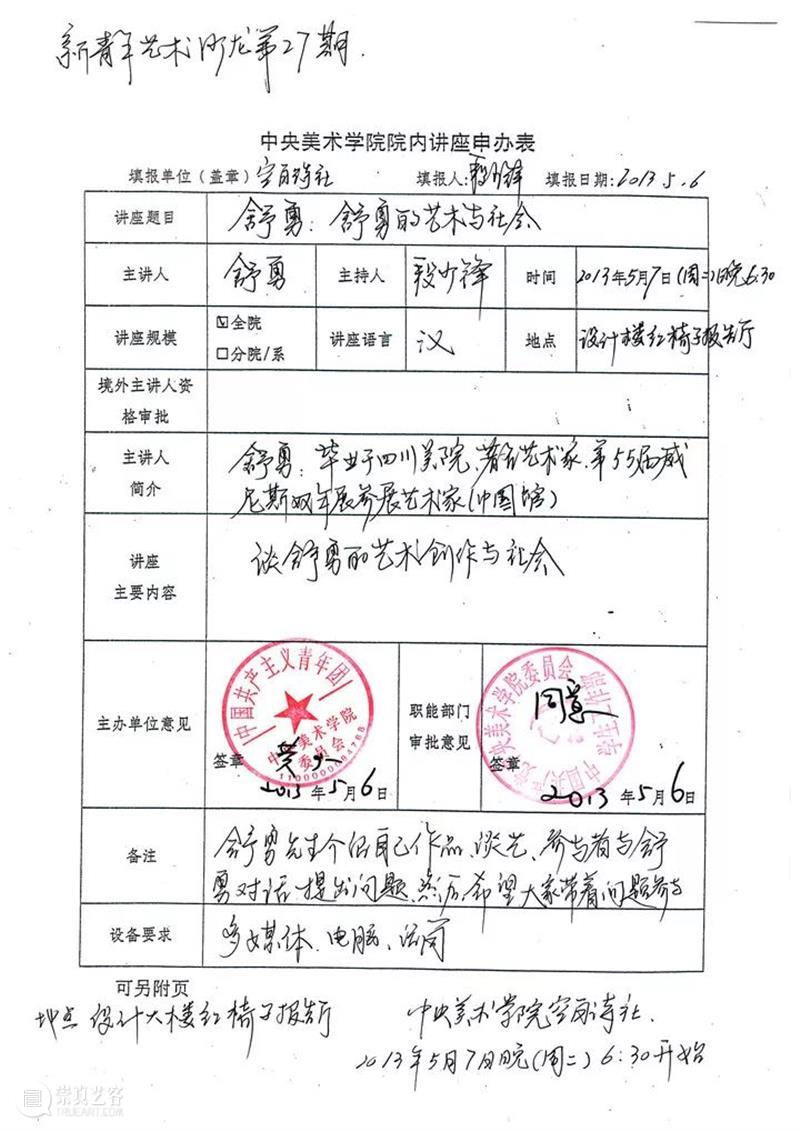 新青年艺术沙龙第27期.
中央美术学院院内讲座申办表
填报单位（盖章）空白诗社 填报人:段少锋 填报日期:2013.5.6
讲座题目 舒勇：舒勇的艺术与社会
主讲人 舒勇 主持人 段少锋 时间 2013年5月7日(周二)日晚6:30
讲座规模 ☑全院 □分院/系 讲座语言 汉 地点 设计楼红椅子报告厅
境外主讲人资
格审批
主讲人
简介
舒勇：毕业于四川美院、著名艺术家、第55届威
尼斯双年展参展艺术家(中国馆)
讲座
主要内容
谈舒勇的艺术创作与社会
主办单位意见
中国共产主义青年团
中央美术学院
委员会
签章
2013年5月6日
职能部门
审批意见
中国共产党中央美术学院委员会
学生工作部
同意
签章
2013年5月6日
备注
舒勇先生介绍自己作品、谈艺、参与者与舒
勇对话 提出问题、然后希望大家带着问题参与
设备要求 多媒体、电脑、话筒
可另附页
地点 设计大楼红椅子报告厅
中央美术学院空白诗社.
2013年5月7日晚(周二) 6:30开始
崇真艺客
TRUEART.COM